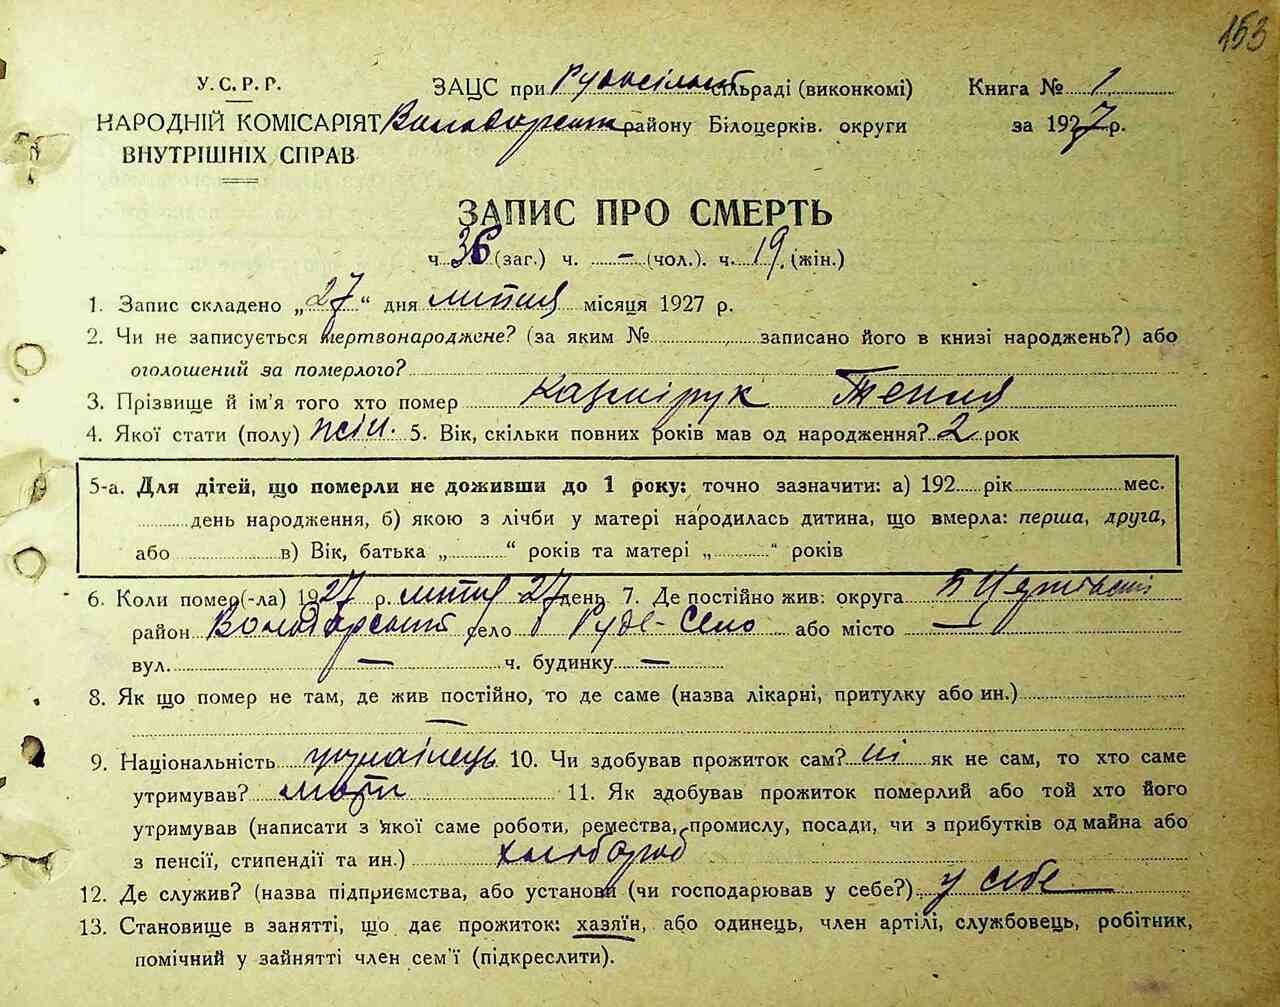 153
У. С. Р. Р.
ЗАЦС при сільраді (виконкомі) Книга № 1
НАРОДНІЙ КОМІСАРІЯТ району Білоцерків. округи за 1927 р.
ВНУТРІШНІХ СПРАВ
ЗАПИС ПРО СМЕРТЬ
ч. 36 (заг.) ч. – (чол.). ч. 19. (жін.)
1. Запис складено „27“ дня липня місяця 1927 р.
2. Чи не записується мертвонароджене? (за яким № записано його в книзі народжень?) або
оголошений за померлого?
3. Прізвище й ім'я того хто помер Казмірук
4. Якої стати (полу) жін. 5. Вік, скільки повних років мав од народження? 2 рок
5-а. Для дітей, що померли не доживши до 1 року: точно зазначити: а) 192 рік мес.
день народження, б) якою з лічби у матері народилась дитина, що вмерла: перша, друга,
або в) Вік, батька „ “ років та матері „ “ років
6. Коли помер(-ла) 1927 р. липня 27 день 7. Де постійно жив: округа
район село Руде-Село або місто —
вул. — ч. будинку —
8. Як що помер не там, де жив постійно, то де саме (назва лікарні, притулку або ин.)
—
9. Національність українець 10. Чи здобував прожиток сам? ні як не сам, то хто саме
утримував? мати 11. Як здобував прожиток померлий або той хто його
утримував (написати з якої саме роботи, ремества, промислу, посади, чи з прибутків од майна або
з пенсії, стипендії та ин.) хлібороб
12. Де служив? (назва підприємства, або установи (чи господарював у себе?) у себе
13. Становище в занятті, що дає прожиток: хазяїн, або одинець, член артілі, службовець, робітник,
помічний у зайнятті член сем'ї (підкреслити).